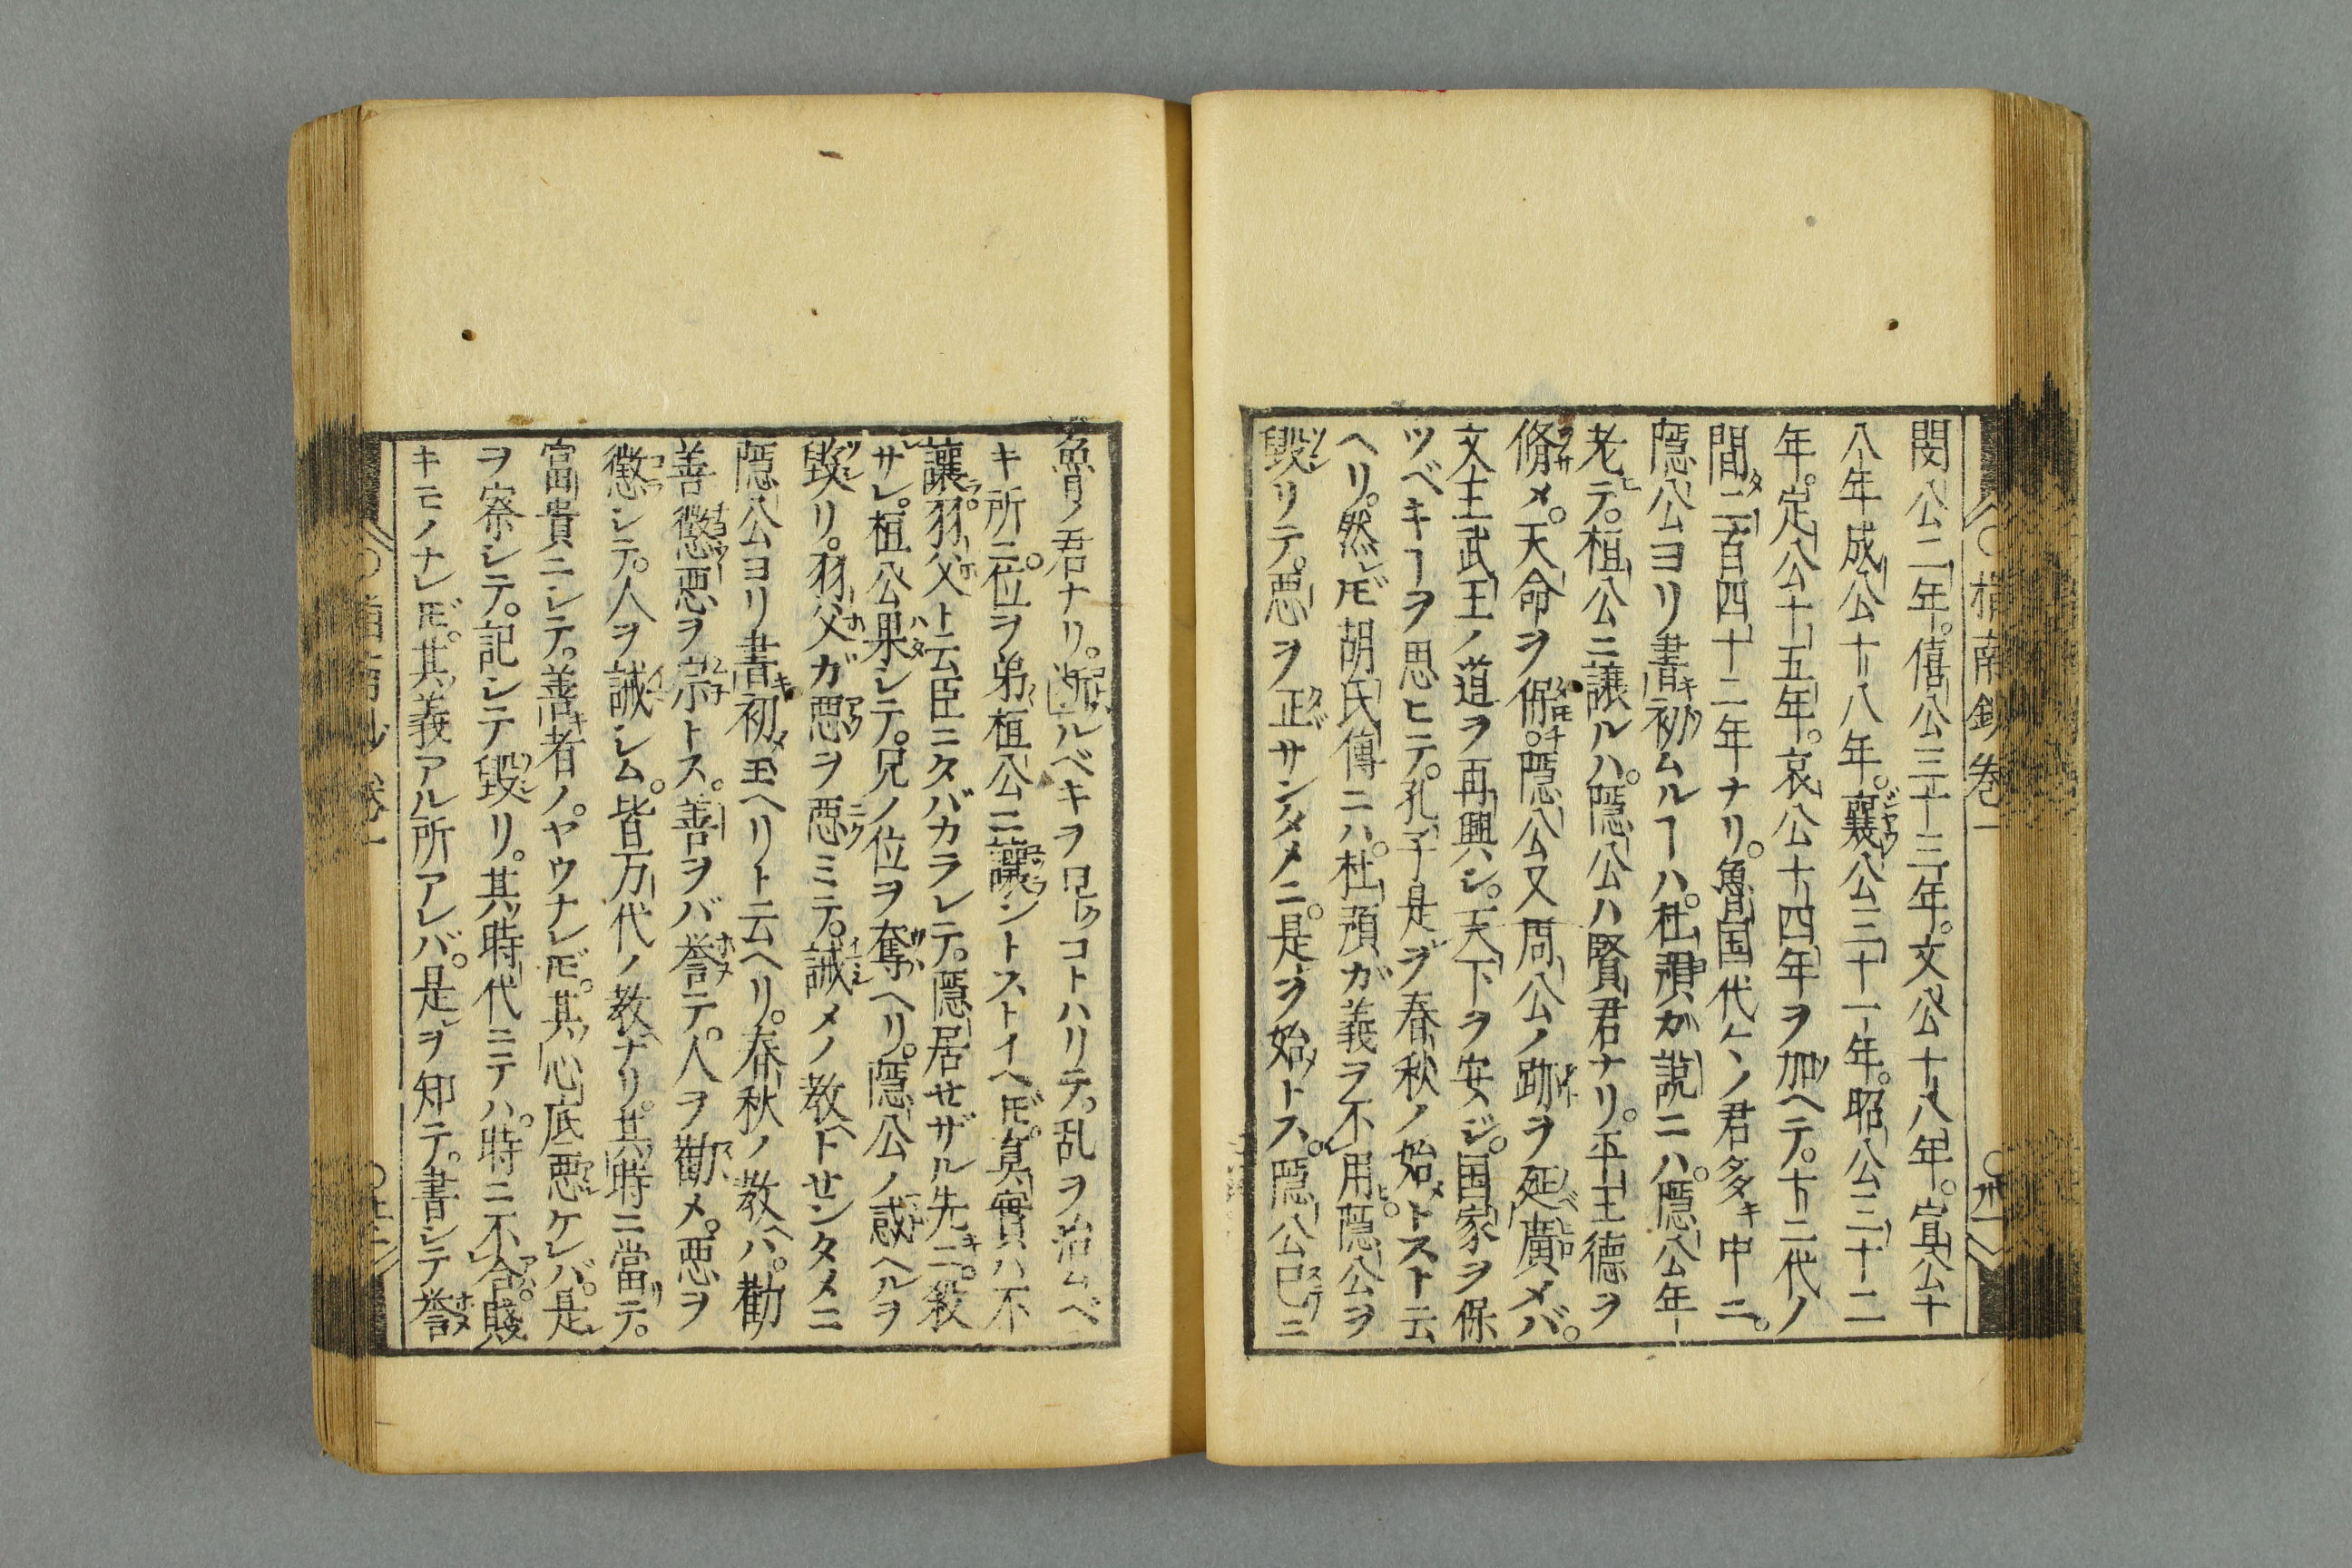 指南鈔卷一
閔公二年。僖公三十三年。文公十八年。宣公十
八年成公十八年。襄公三十一年。昭公三十二
年。定公十五年。哀公十四年ヲ加ヘテ。十二代ノ
間二百四十二年ナリ。魯国代々ノ君多キ中ニ。
隠公ヨリ書キ初ムルヿハ。杜預ガ説ニハ。隠公年
老テ。桓公ニ譲ルハ。隠公ハ賢君ナリ。平王德ヲ
脩メ。天命ヲ保。隠公又周公ノ跡ヲ延廣メバ。
文王武王ノ道ヲ再興シ。天下ヲ安ジ。国家ヲ保
ツベキヿヲ思ヒテ。孔子是ヲ春秋ノ始メトスト云
ヘリ。然𪜈胡氏傳ニハ。杜預ガ義ヲ不用。隠公ヲ
毀リテ。悪ヲ正サンタメニ。是ヲ始トス。隠公已ニ
魯ノ君ナリ。断ルベキヲ コトハリテ。乱ヲ治ムベ
キ所ニ。位ヲ弟桓公ニ讓ントストイヘ𪜈。真實ハ不
讓。羽父ト云臣ニタバカラレテ。隠居せザル先キニ。殺
サレ。桓公果シテ。兄ノ位ヲ奪ヘリ。隠公ノ惑ヘルヲ
毀リ。羽父ガ悪ヲ悪ミテ。誡メノ教ヘトせンタメニ
隠公ヨリ書キ初メ玉ヘリト云ヘリ。春秋ノ教ヘハ。勸
善懲悪ヲ宗トス。善ヲバ誉テ。人ヲ勸メ。悪ヲ
懲シテ。人ヲ誡シム。皆万代ノ教ナリ。其時ニ當テ。
富貴ニシテ。善キ者ノ。ヤウナレ𪜈。其心底悪ケレバ。是
ヲ察シテ。記シテ毀リ。其時代ニテハ。時ニ不合。賤
キモノナレ𪜈。其義アル所アレバ。是ヲ知テ。書シテ誉